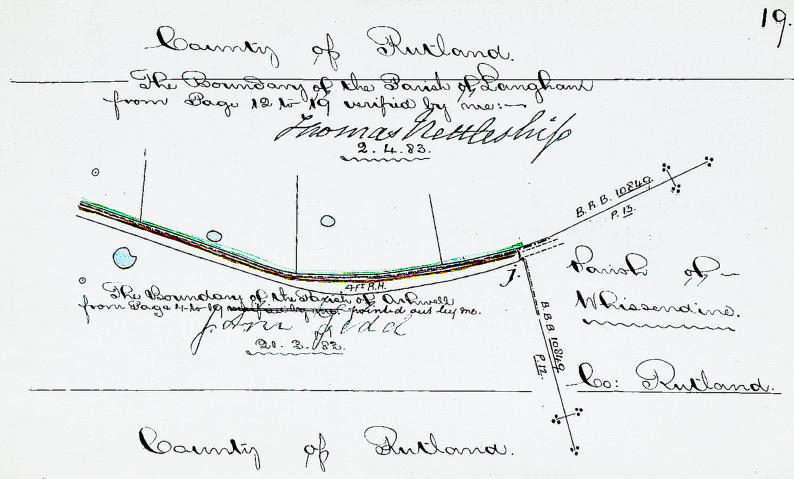 19.
County of Rutland.
The Boundary of the Parish of Langham
from Page 12 to 19 verified by me:—
Thomas Nettleship
2.4.83.
B.R.B. 10849.
P.13.
4 Ft R.H.
j.
Parish of
Whissendine.
The Boundary of the Parish of Ashwell
from Page 4 to 19 verified by me. pointed out by me.
John Judd
21.3.83.
B.R.B. 10849
P.12.
Co: Rutland.
County of Rutland.